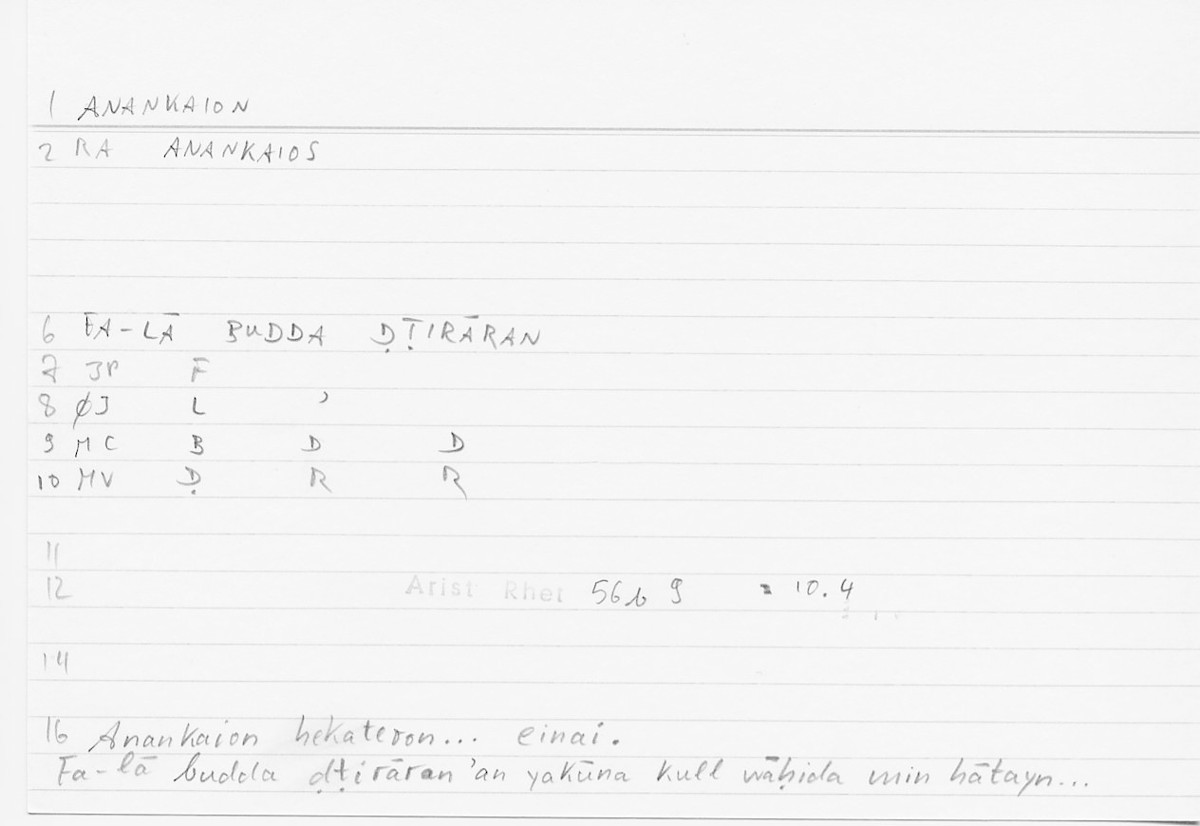 1 ANANKAION
2 RA ANANKAIOS
6 FA-LĀ BUDDA ḌṬIRĀRAN
7 JP F
8 ØJ L ʾ
9 MC B D D
10 MV Ḍ R R
11
12 Arist Rhet 56b 9 = 10.4
14
16 Anankaion hekateron... einai.
Fa-lā budda ḍṭirāran ʾan yakūna kull wāḥida min hātayn...